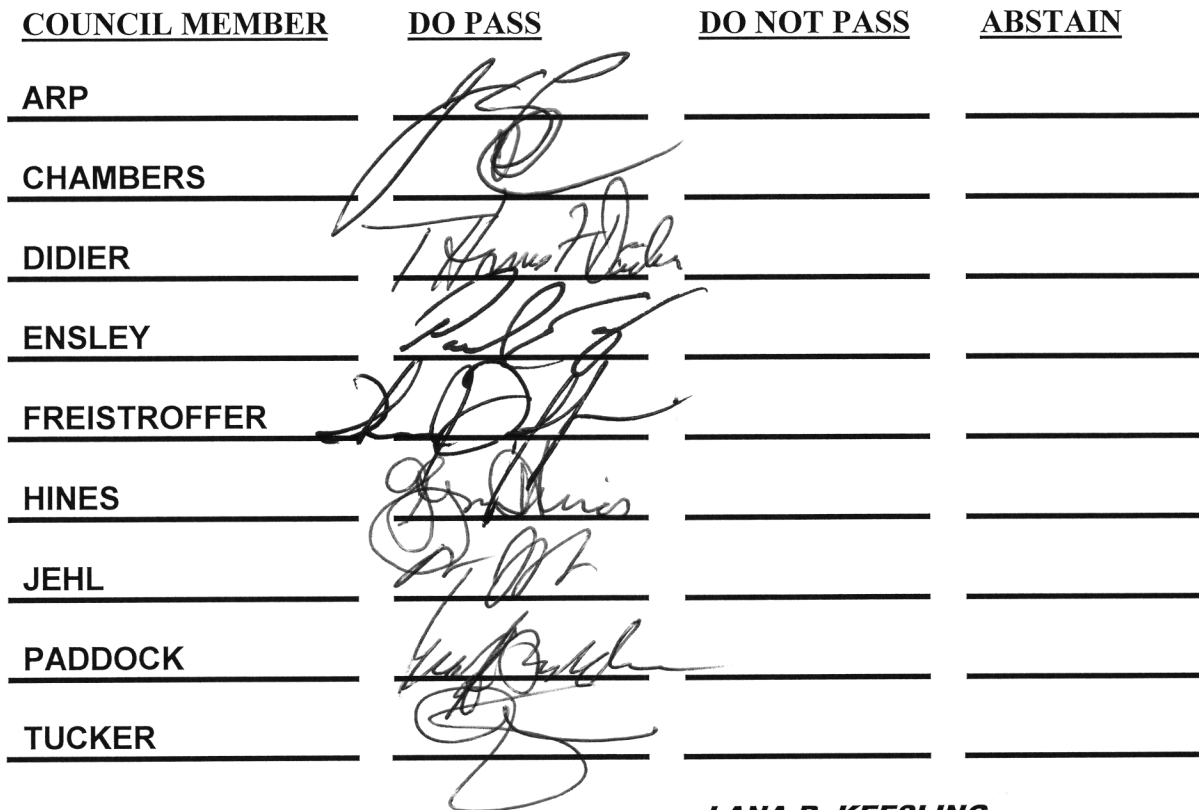 COUNCIL MEMBER DO PASS DO NOT PASS ABSTAIN
ARP
CHAMBERS
DIDIER Thomas F Didier
ENSLEY Paul
FREISTROFFER
HINES Glynn Hines
JEHL
PADDOCK Geoff Paddock
TUCKER
LANA R. KEESLING